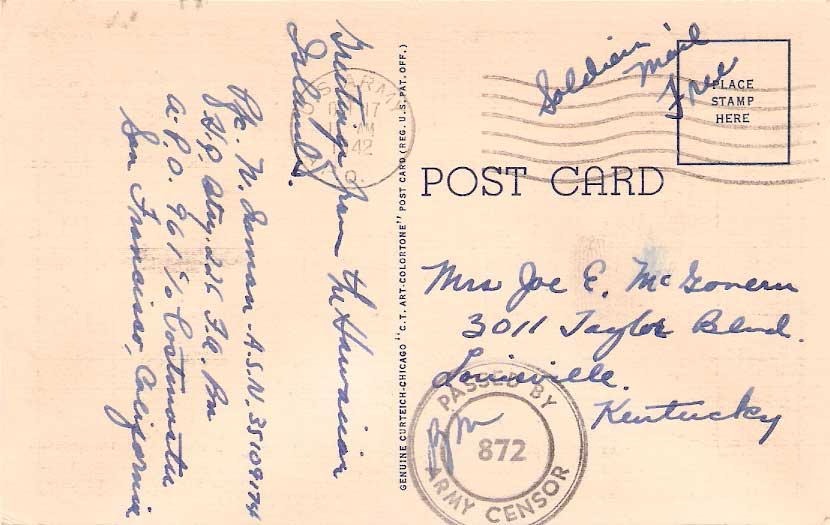 Greetings from the Hawaiian
Islands.
Pfc. N. A.S.N. 35109174
Hq. Btry, 225 F.A. Bn
A.P.O. 961 c/o Postmaster
San Francisco, California
U.S. ARMY
17
AM
1942
A.P.O.
GENUINE CURTEICH-CHICAGO "C.T. ART-COLORTONE" POST CARD (REG. U.S. PAT. OFF.)
Soldiers
Mail
Free
PLACE
STAMP
HERE
POST CARD
Mrs Joe E. McGovern
3011 Taylor Blvd.
Louisville.
Kentucky
PASSED BY
872
ARMY CENSOR